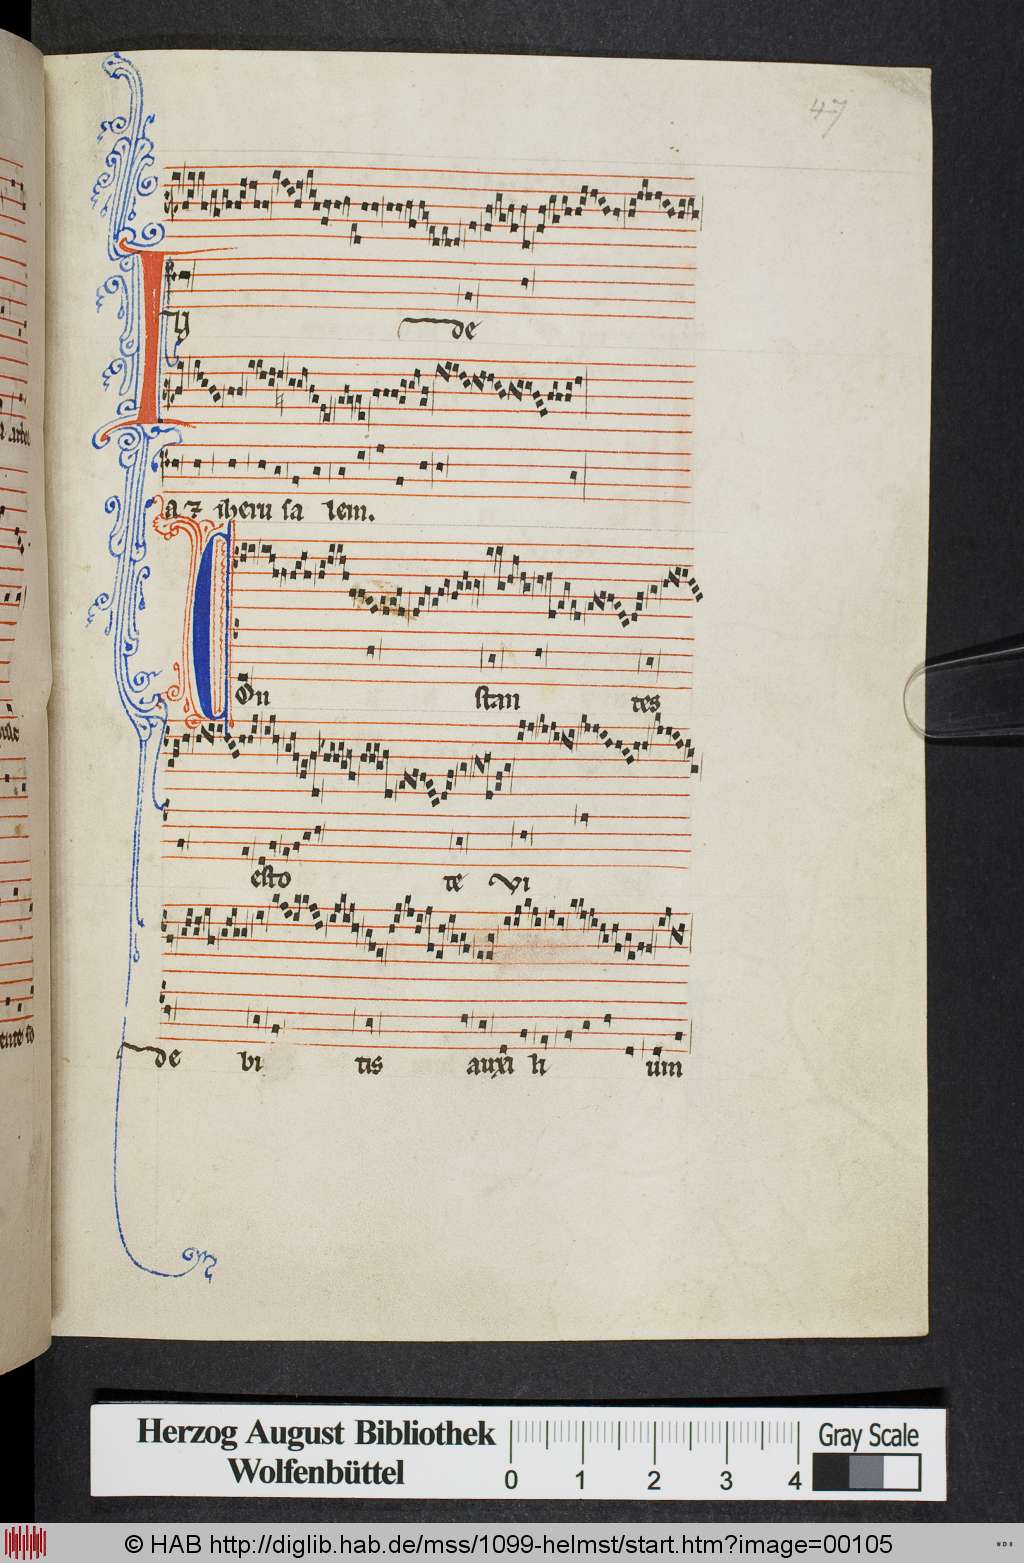 47
Iu de
a ⁊ iheru sa lem.
Con stan tes
esto te vi
de bi tis auxi li um
Herzog August Bibliothek
Wolfenbüttel
0 1 2 3 4
Gray Scale
© HAB http://diglib.hab.de/mss/1099-helmst/start.htm?image=00105